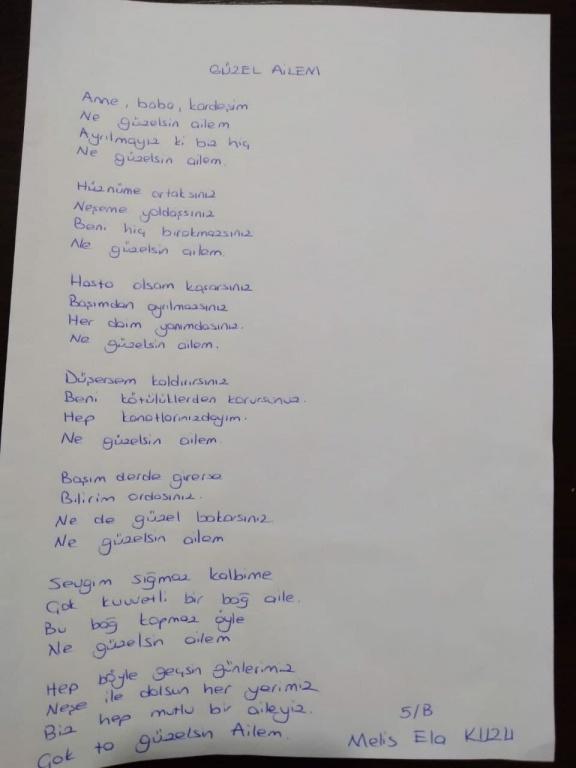 GÜZEL AİLEM
Anne, baba, kardeşim
Ne güzelsin ailem
Ayrılmayız ki biz hiç
Ne güzelsin ailem.
Hüznüme ortaksınız
Neşeme yoldaşsınız
Beni hiç bırakmazsınız
Ne güzelsin ailem.
Hasta olsam koşarsınız
Başımdan ayrılmazsınız
Her daim yanımdasınız.
Ne güzelsin ailem.
Düşersem kaldırırsınız
Beni kötülüklerden korursunuz.
Hep kanatlarınızdayım.
Ne güzelsin ailem.
Başım derde girerse
Bilirim ordasınız.
Ne de güzel bakarsınız.
Ne güzelsin ailem
Sevgim sığmaz kalbime
Çok kuvvetli bir bağ aile.
Bu bağ kopmaz öyle
Ne güzelsin ailem
Hep böyle geçsin günlerimiz
Neşe ile dolsun her yerimiz
Biz hep mutlu bir aileyiz.
Çok ta güzelsin Ailem.
5/B
Melis Ela KUZU